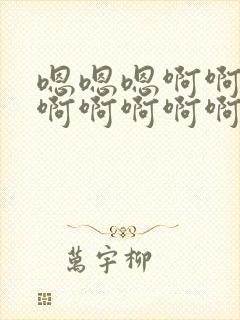 嗯嗯嗯啊啊
啊啊啊啊啊
萬宇柳